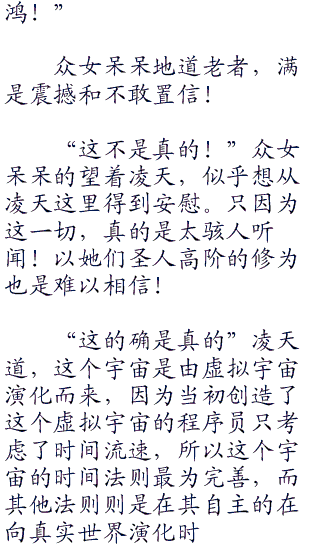 鸿！”
众女呆呆地道老者，满
是震撼和不敢置信！
“这不是真的！”众女
呆呆的望着凌天，似乎想从
凌天这里得到安慰。只因为
这一切，真的是太骇人听
闻！以她们圣人高阶的修为
也是难以相信！
“这的确是真的”凌天
道，这个宇宙是由虚拟宇宙
演化而来，因为当初创造了
这个虚拟宇宙的程序员只考
虑了时间流速，所以这个宇
宙的时间法则最为完善，而
其他法则则是在其自主的在
向真实世界演化时